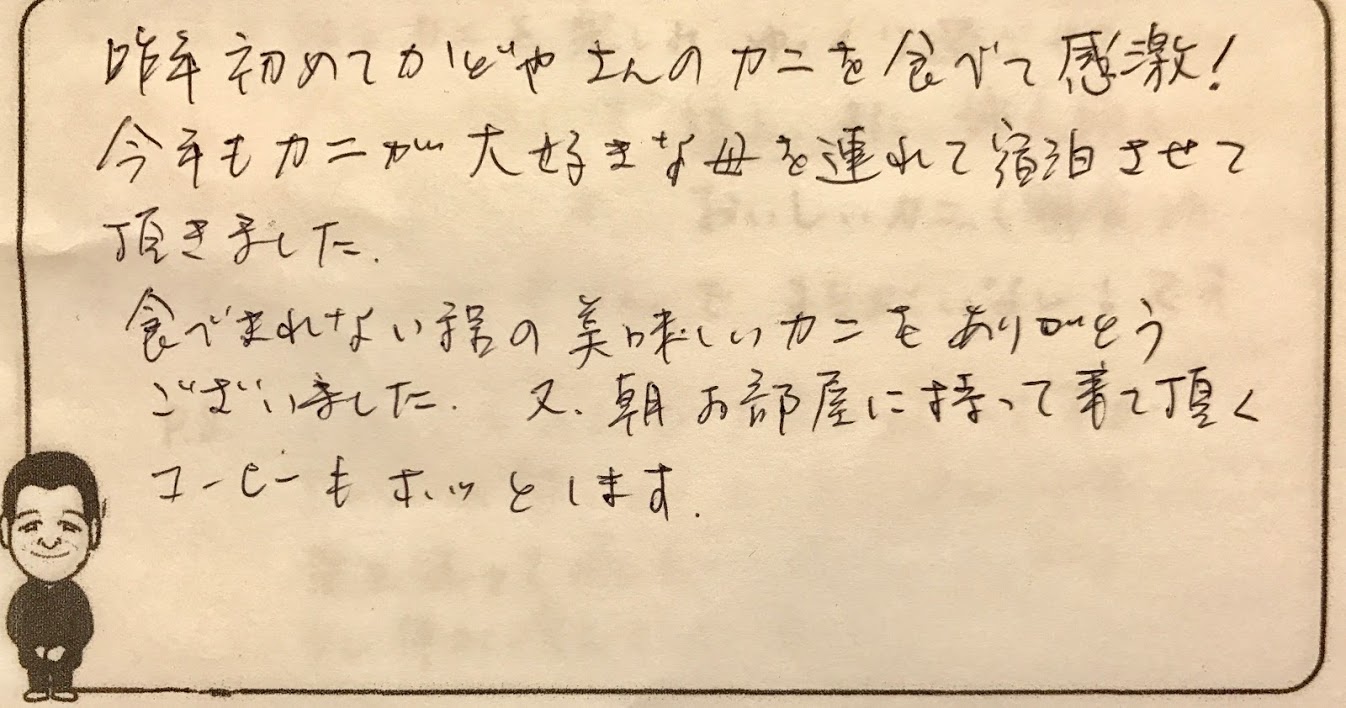 昨年初めてかどやさんのカニを食べて感激!
今年もカニが大好きな母を連れて宿泊させて
頂きました.
食べきれない程の美味しいカニをありがとう
ございました. 又、朝お部屋に持って来て頂く
コーヒーもホッとします.